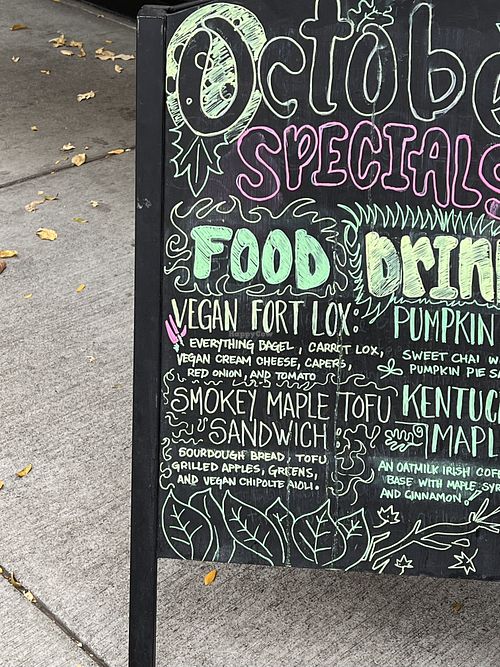 Octobe
SPECIALS
FOOD
VEGAN FORT LOX:
EVERYTHING BAGEL, CARROT LOX,
VEGAN CREAM CHEESE, CAPERS,
RED ONION, AND TOMATO
SMOKEY MAPLE TOFU
SANDWICH
SOURDOUGH BREAD, TOFU
GRILLED APPLES, GREENS,
AND VEGAN CHIPOLTE AIOLI.
DRIN
PUMPKIN
SWEET CHAI W
PUMPKIN PIE SA
KENTUC
MAPL
AN OATMILK IRISH COFF
BASE WITH MAPLE SYR
AND CINNAMON!